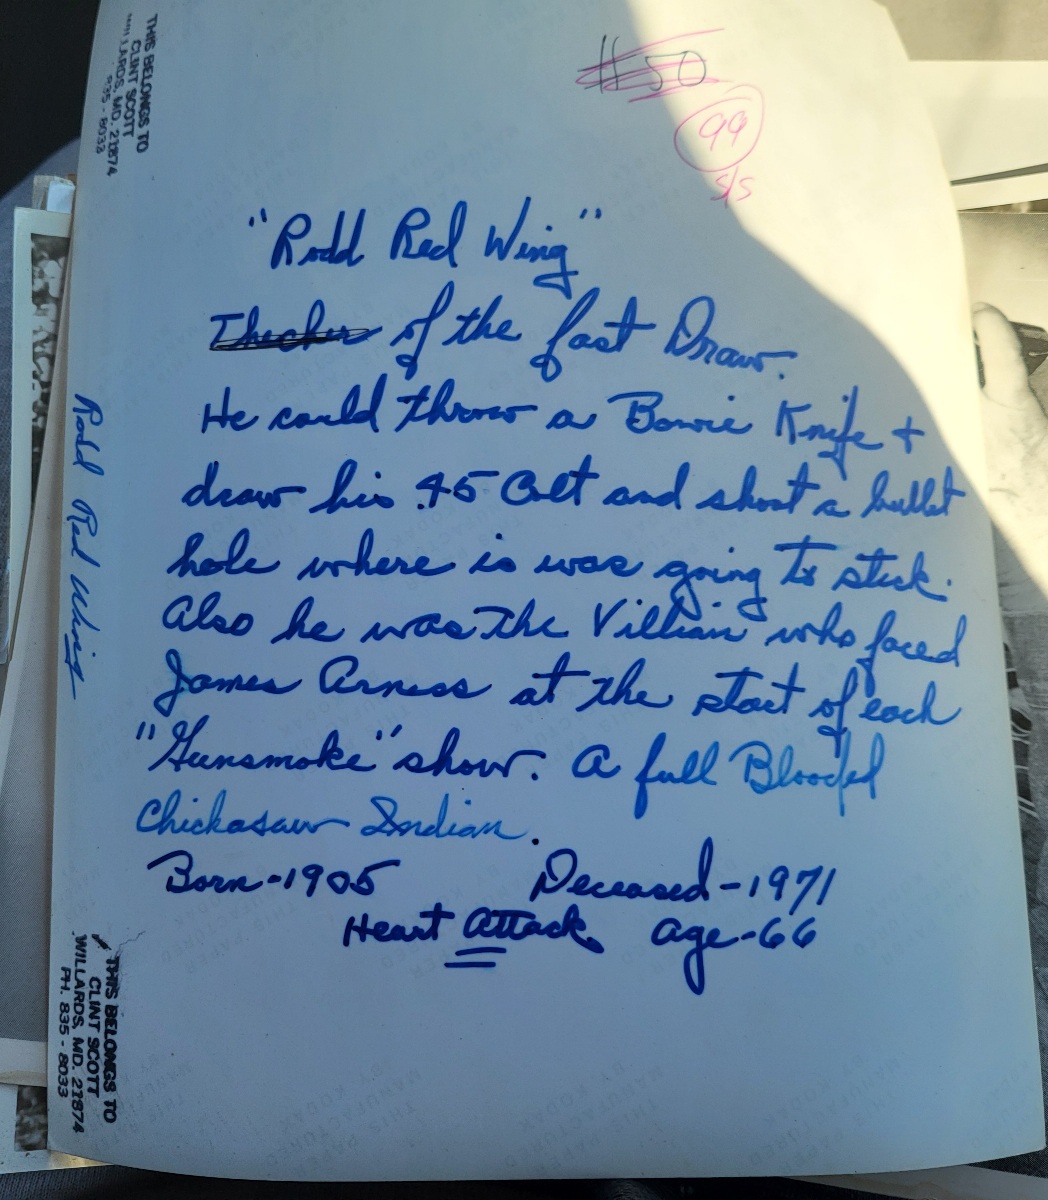 THIS BELONGS TO
CLINT SCOTT
WILLARDS, MD. 21874
835 - 8033
#50
99
s/s
"Rodd Red Wing"
of the fast Draw.
He could throw a Bowie Knife +
draw his .45 Colt and shoot a bullet
hole where is was going to stick.
Also he was the Villian who faced
James Arness at the start of each
"Gunsmoke" show. A full Blooded
Chickasaw Indian.
Born-1905 Deceased-1971
Heart Attack Age-66
Rodd Red Wing
THIS BELONGS TO
CLINT SCOTT
WILLARDS, MD. 21874
PH. 835 - 8033